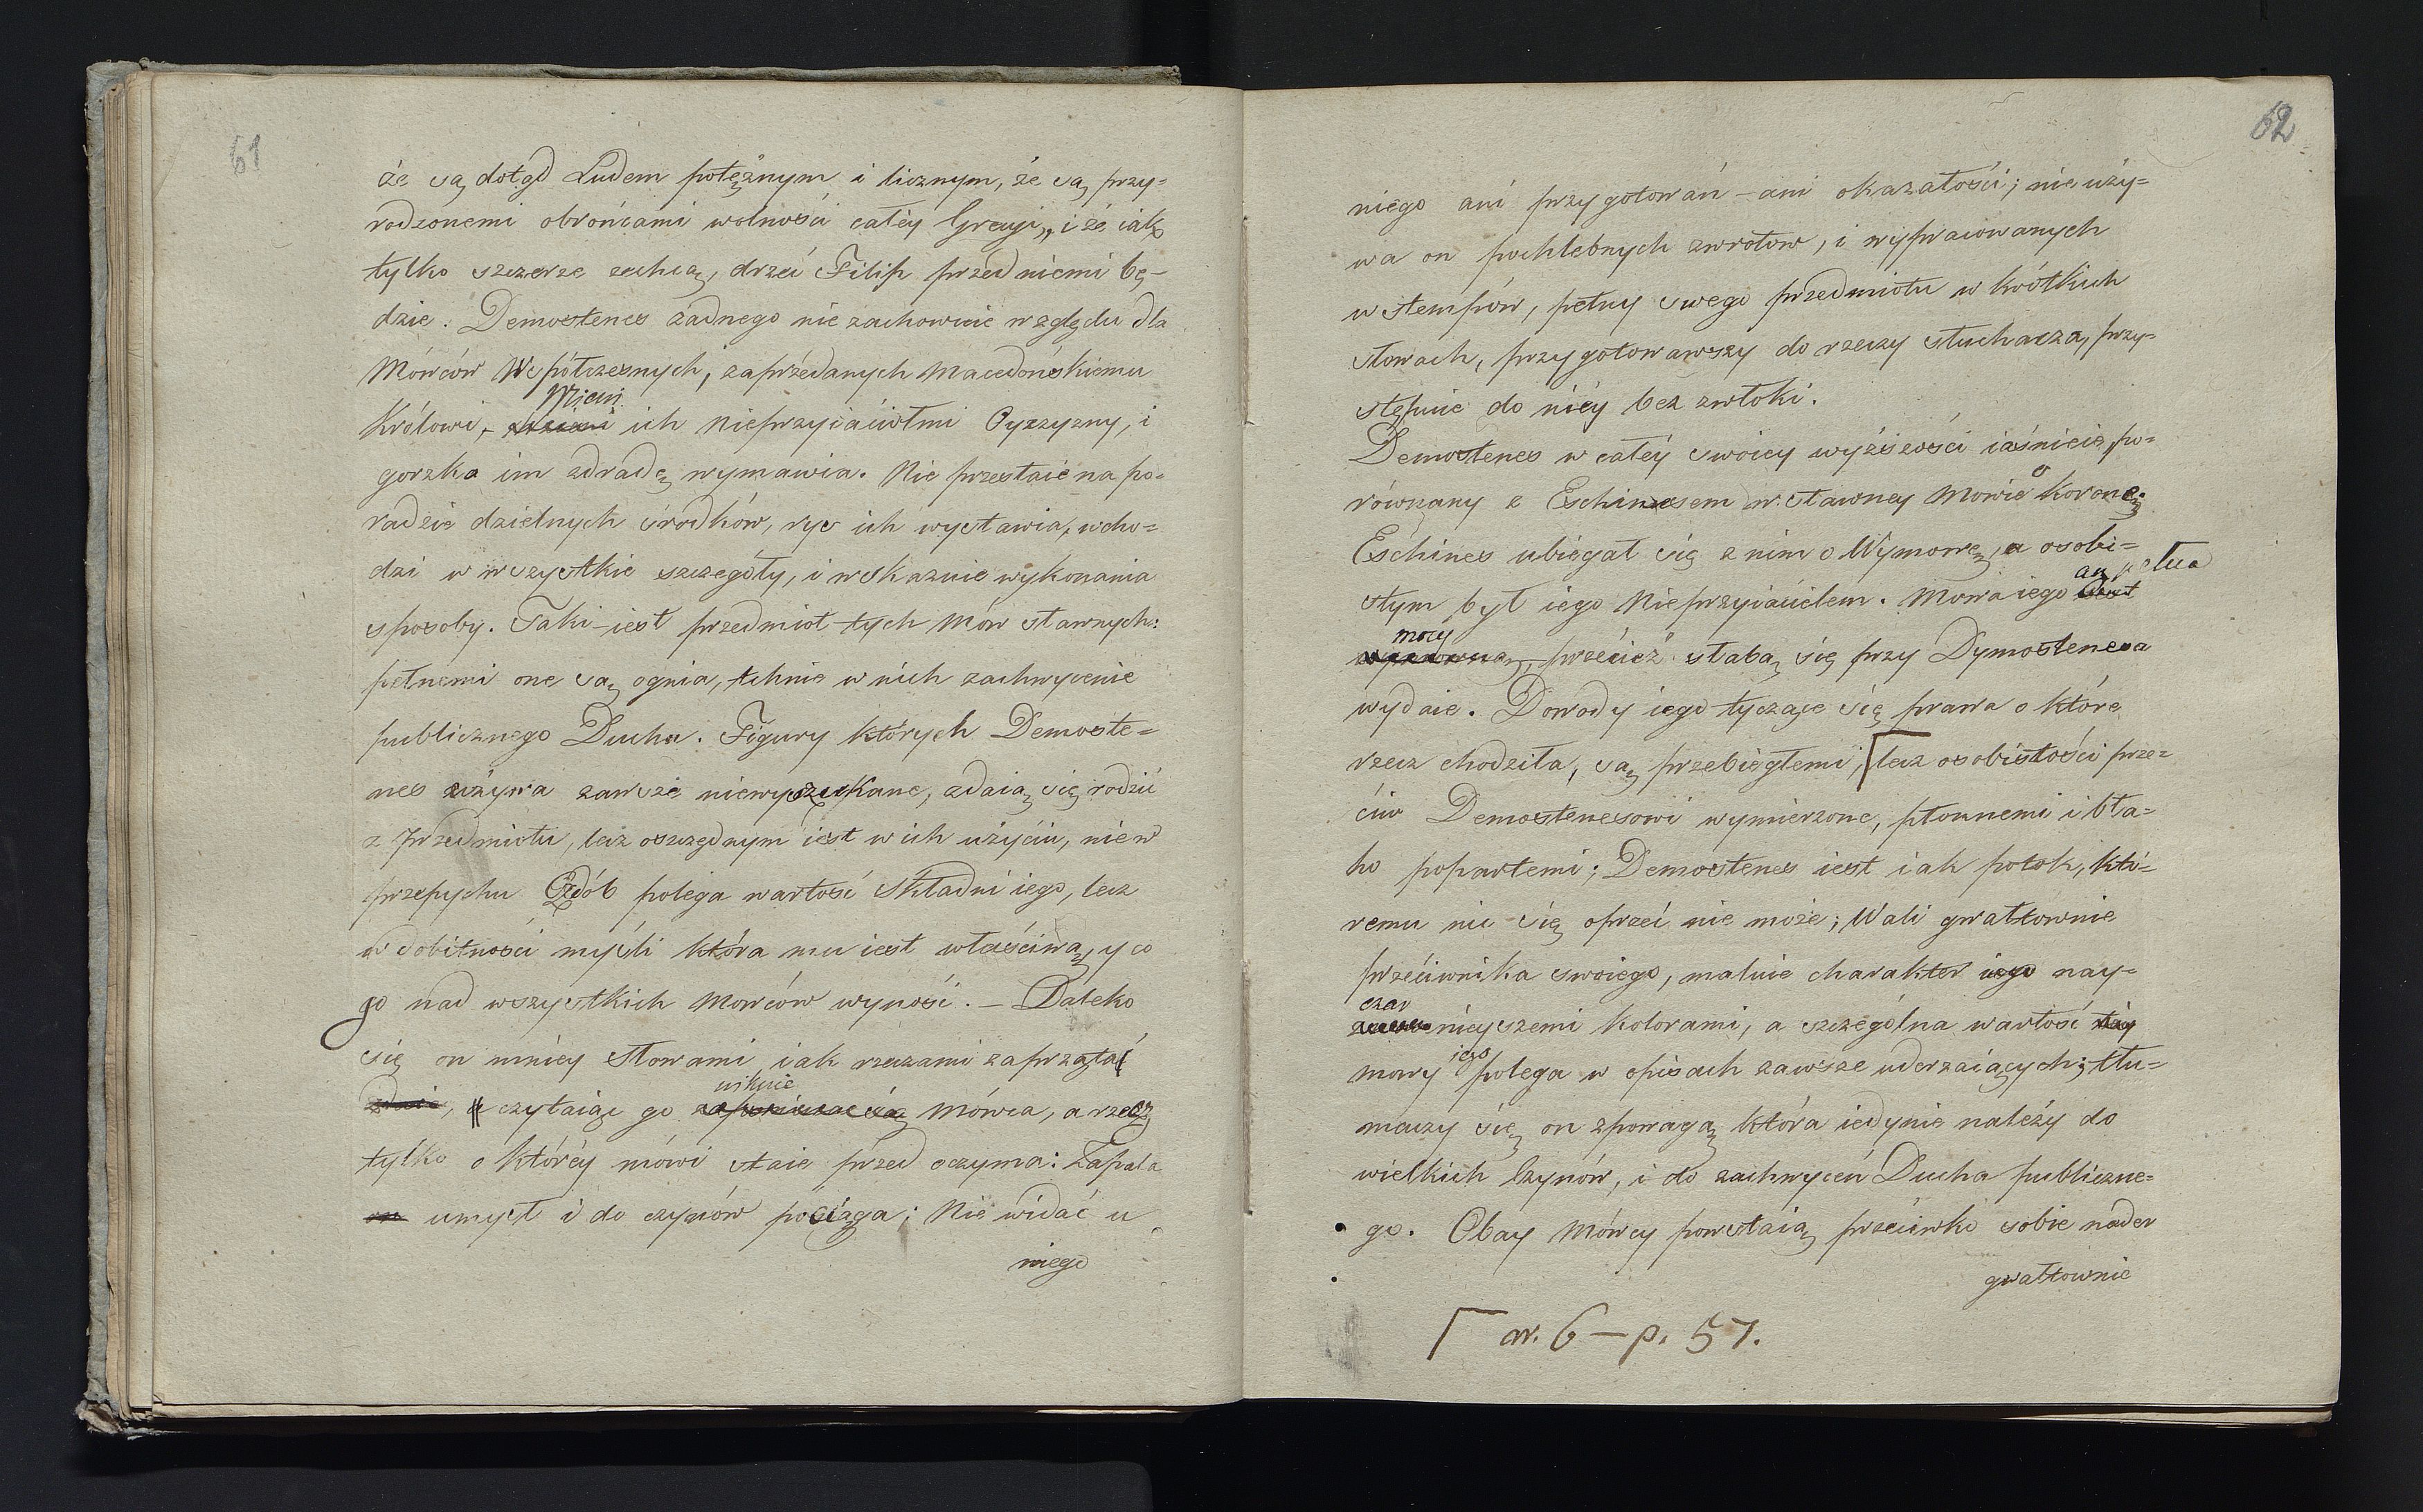 61
że są dotąd Ludem potężnym i licznym, że są przy=
rodzonemi obrońcami wolności całéy Grecyi, i że iak
tylko szczerze zechcą, drzeć Filip przed niemi bę-
dzie. Demostenes żadnego nie zachowuie względu dla
Mówców Wspótczesnych, zaprzedanych Macedońskiemu
Mieni
Królowi, ich Nieprzyiaciołmi Oyczyzny, i
gorzko im zdradę wymawia. Nie przestaie na po=
radzie dzielnych środków, rys ich wystawia, wcho=
dzi w wszystkie szczegóły, i wskazuie wykonania
sposoby. Taki iest przedmiot tych Mów sławnych:
pełnemi one są ognia, tchnie w nich zachwycenie
publicznego Ducha. Figury których Demoste=
nes używa zawsze niewyszukane, zdaią się rodzić
z przedmiotu, lecz oszczędnym iest w ich użyciu, nie w
przepychu Ozdób polega wartość Składni iego, lecz
w dobitności myśli która mu iest właściwą, y co
go nad wszystkich Mowców wynosi. – Daleko
się on mniey Słowami iak rzeczami zaprząta
niknie
czytaiąc go Mówca, a rzecz
tylko o któréy mówi staie przed oczyma: Zapala
umysł i do czynów pociąga; Nie widać u
niego
62
niego ani przygotowań – ani okazałości; nie uży=
wa on pochlebnych zwrotow, i wypracowanych
wstempów, pełny swego przedmiotu w krótkich
słowach, przygotowawszy do rzeczy słuchacza, przy=
stępuie do niéy bez zwłoki.
Demostenes w całéy swoiey wyższości iaśnieie, po=
równany z Eschinesem w sławney Mowie o Koronę.
Eschines ubiegał się z nim o Wymowę, a osobi=
stym był iego Nieprzyiacielem. Mowa iego
mocy
przecież słabą się przy Dymostenesa
wydaie. Dowody iego tyczące się prawa o które
rzecz chodziła, są przebiegłemi, ⌈lecz osobistości prze=
ciw Demostenesowi wymierzone, płonnemi i bła=
ho popartemi; Demostenes iest iak potok, któ=
remu nic się oprzeć nie może; Wali gwałtownie
przeciwnika swoiego, maluie charakter iego nay=
czar
nieyszemi kolorami, a szczególna wartość
mowy iego polega w opisach zawsze uderzaiących; tłu=
maczy się on z powagą która iedynie należy do
wielkich Czynów, i do zachwyceń Ducha publiczne=
go. Obay Mówcy powstaią przeciwko sobie nader
gwałtownie
⌈ w. 6 – p. 57.